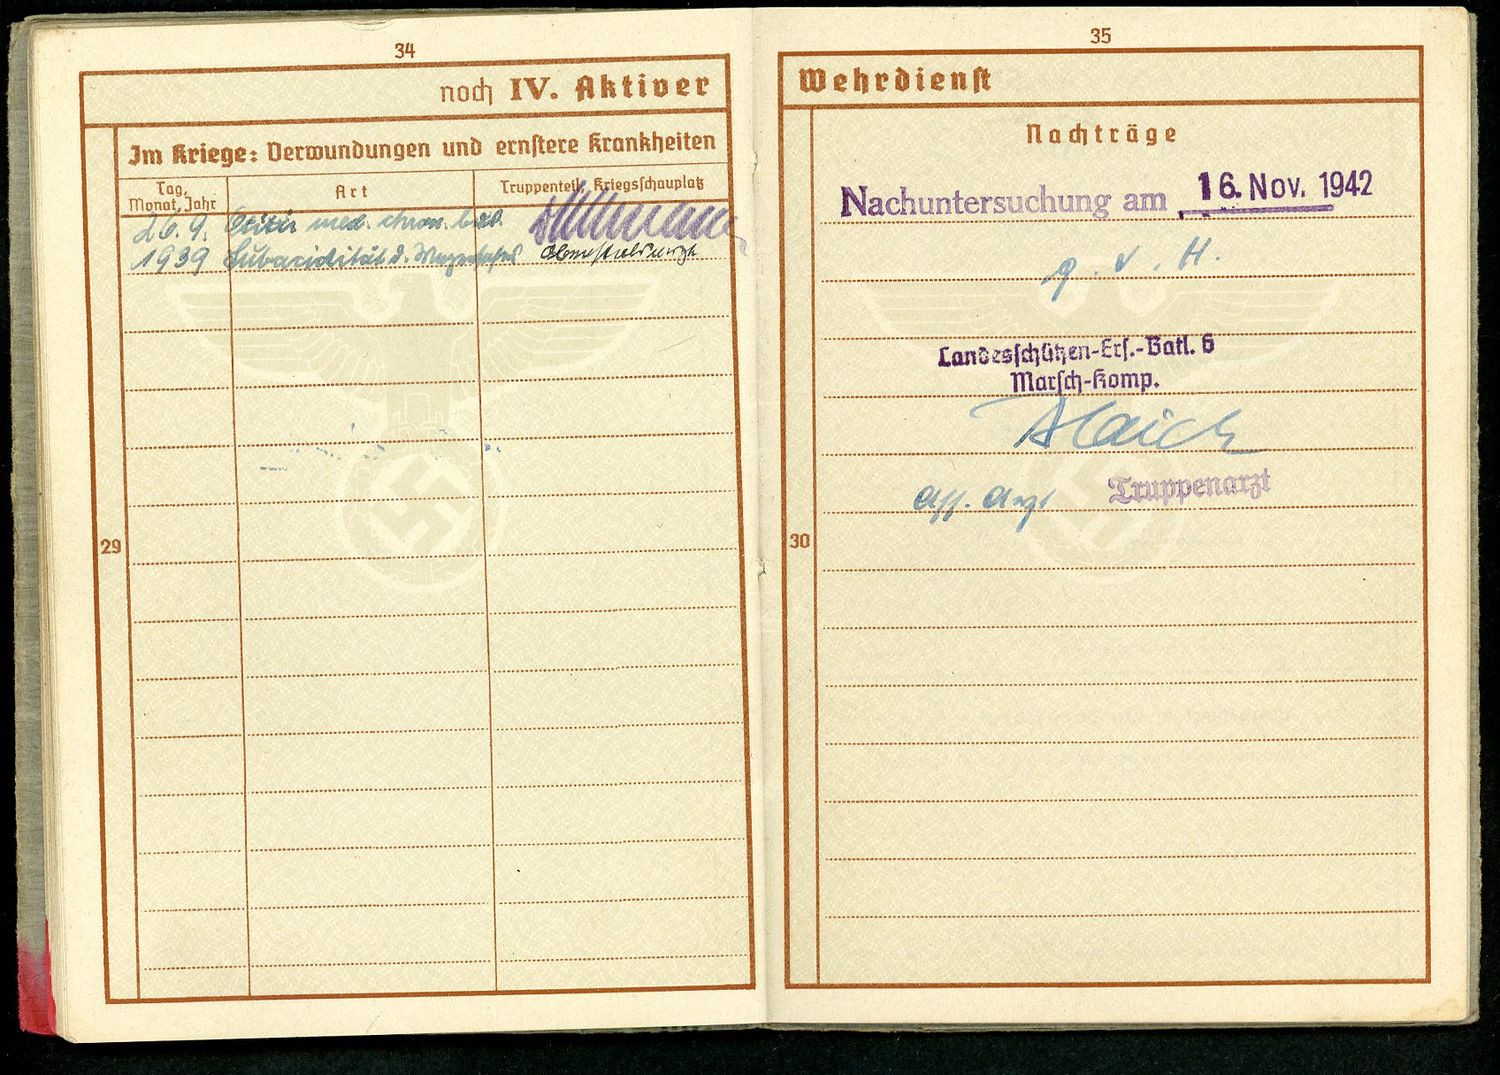 34
noch IV. Aktiver
Im Kriege: Verwundungen und ernstere Krankheiten
Tag, Monat, Jahr
Art
Truppenteil, Kriegsschauplatz
26.9. Otitis med. chron. bds.
1939 Subacidität d. Magensaftes
29
35
Wehrdienst
Nachträge
Nachuntersuchung am 16. Nov. 1942
g. v. H.
Landesschützen-Ers.-Batl. 6
Marsch-Komp.
Ass. Arzt Truppenarzt
30